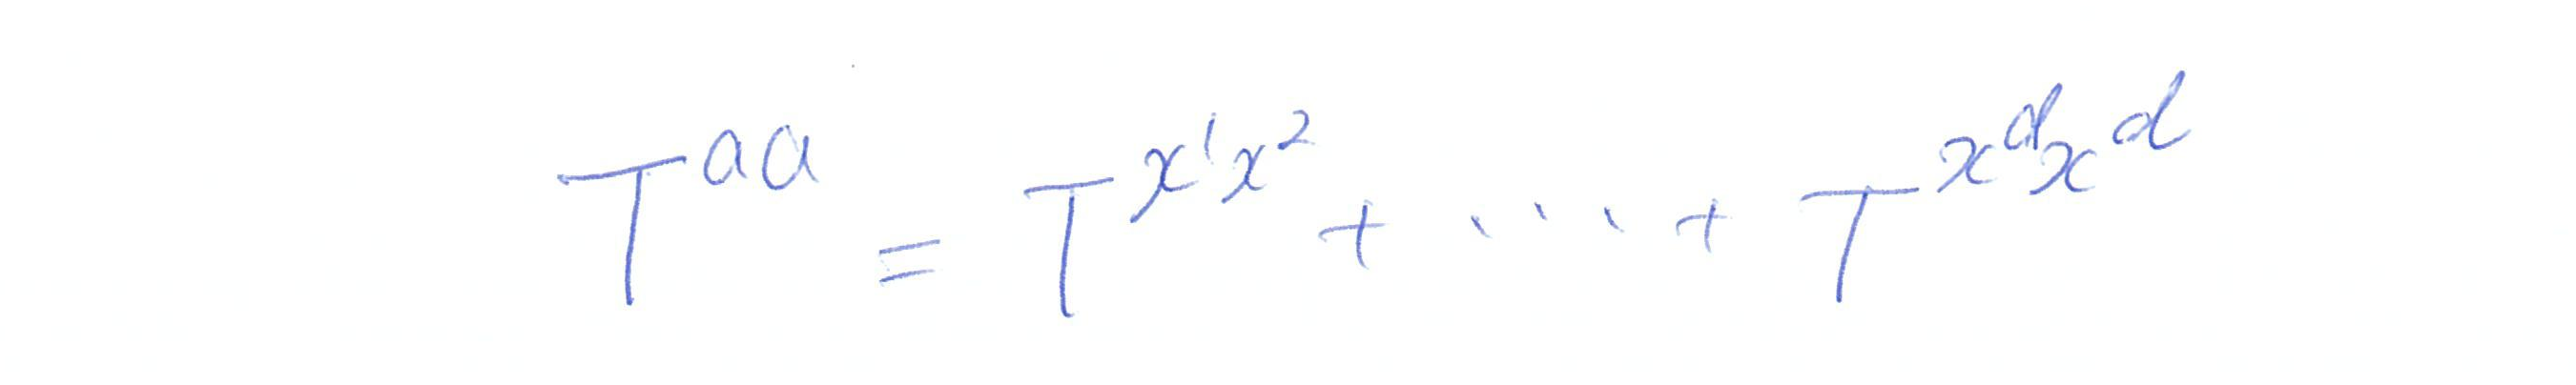 T^{aa} = T^{x^1 x^2} + \cdots + T^{x^d x^d}